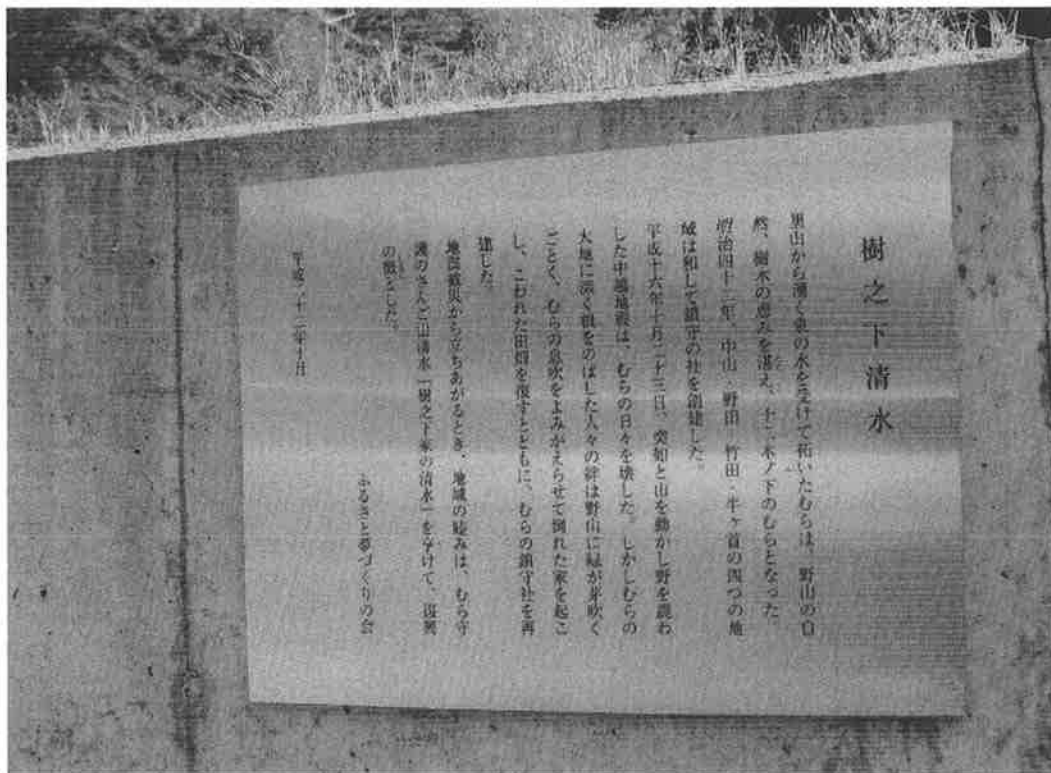 樹之下清水
里山から湧く泉の水を受けて拓いたむらは、野山の自
然、樹木の恵みを湛え、十二木ノ下のむらとなった
明治四十二年、中山・野田・竹田・牛ヶ首の四つの地
域は和して鎮守の社を創建した。
平成十六年十月二十三日、突如と山を動かし野を震わ
した中越地震は、むらの日々を壊した。しかしむらの
大地に深く根をのばした人々の絆は野山に緑が芽吹く
ごとく、むらの息吹をよみがえらせて倒れた家を起こ
し、こわれた田畑を復すとともに、むらの鎮守社を再
建した。
地震被災から立ちあがるとき、地域の睦みは、むら守
護のさんご山清水「樹之下家の清水」を分けて、復興
の徴とした。
ふるさと夢づくりの会
平成二十二年十月